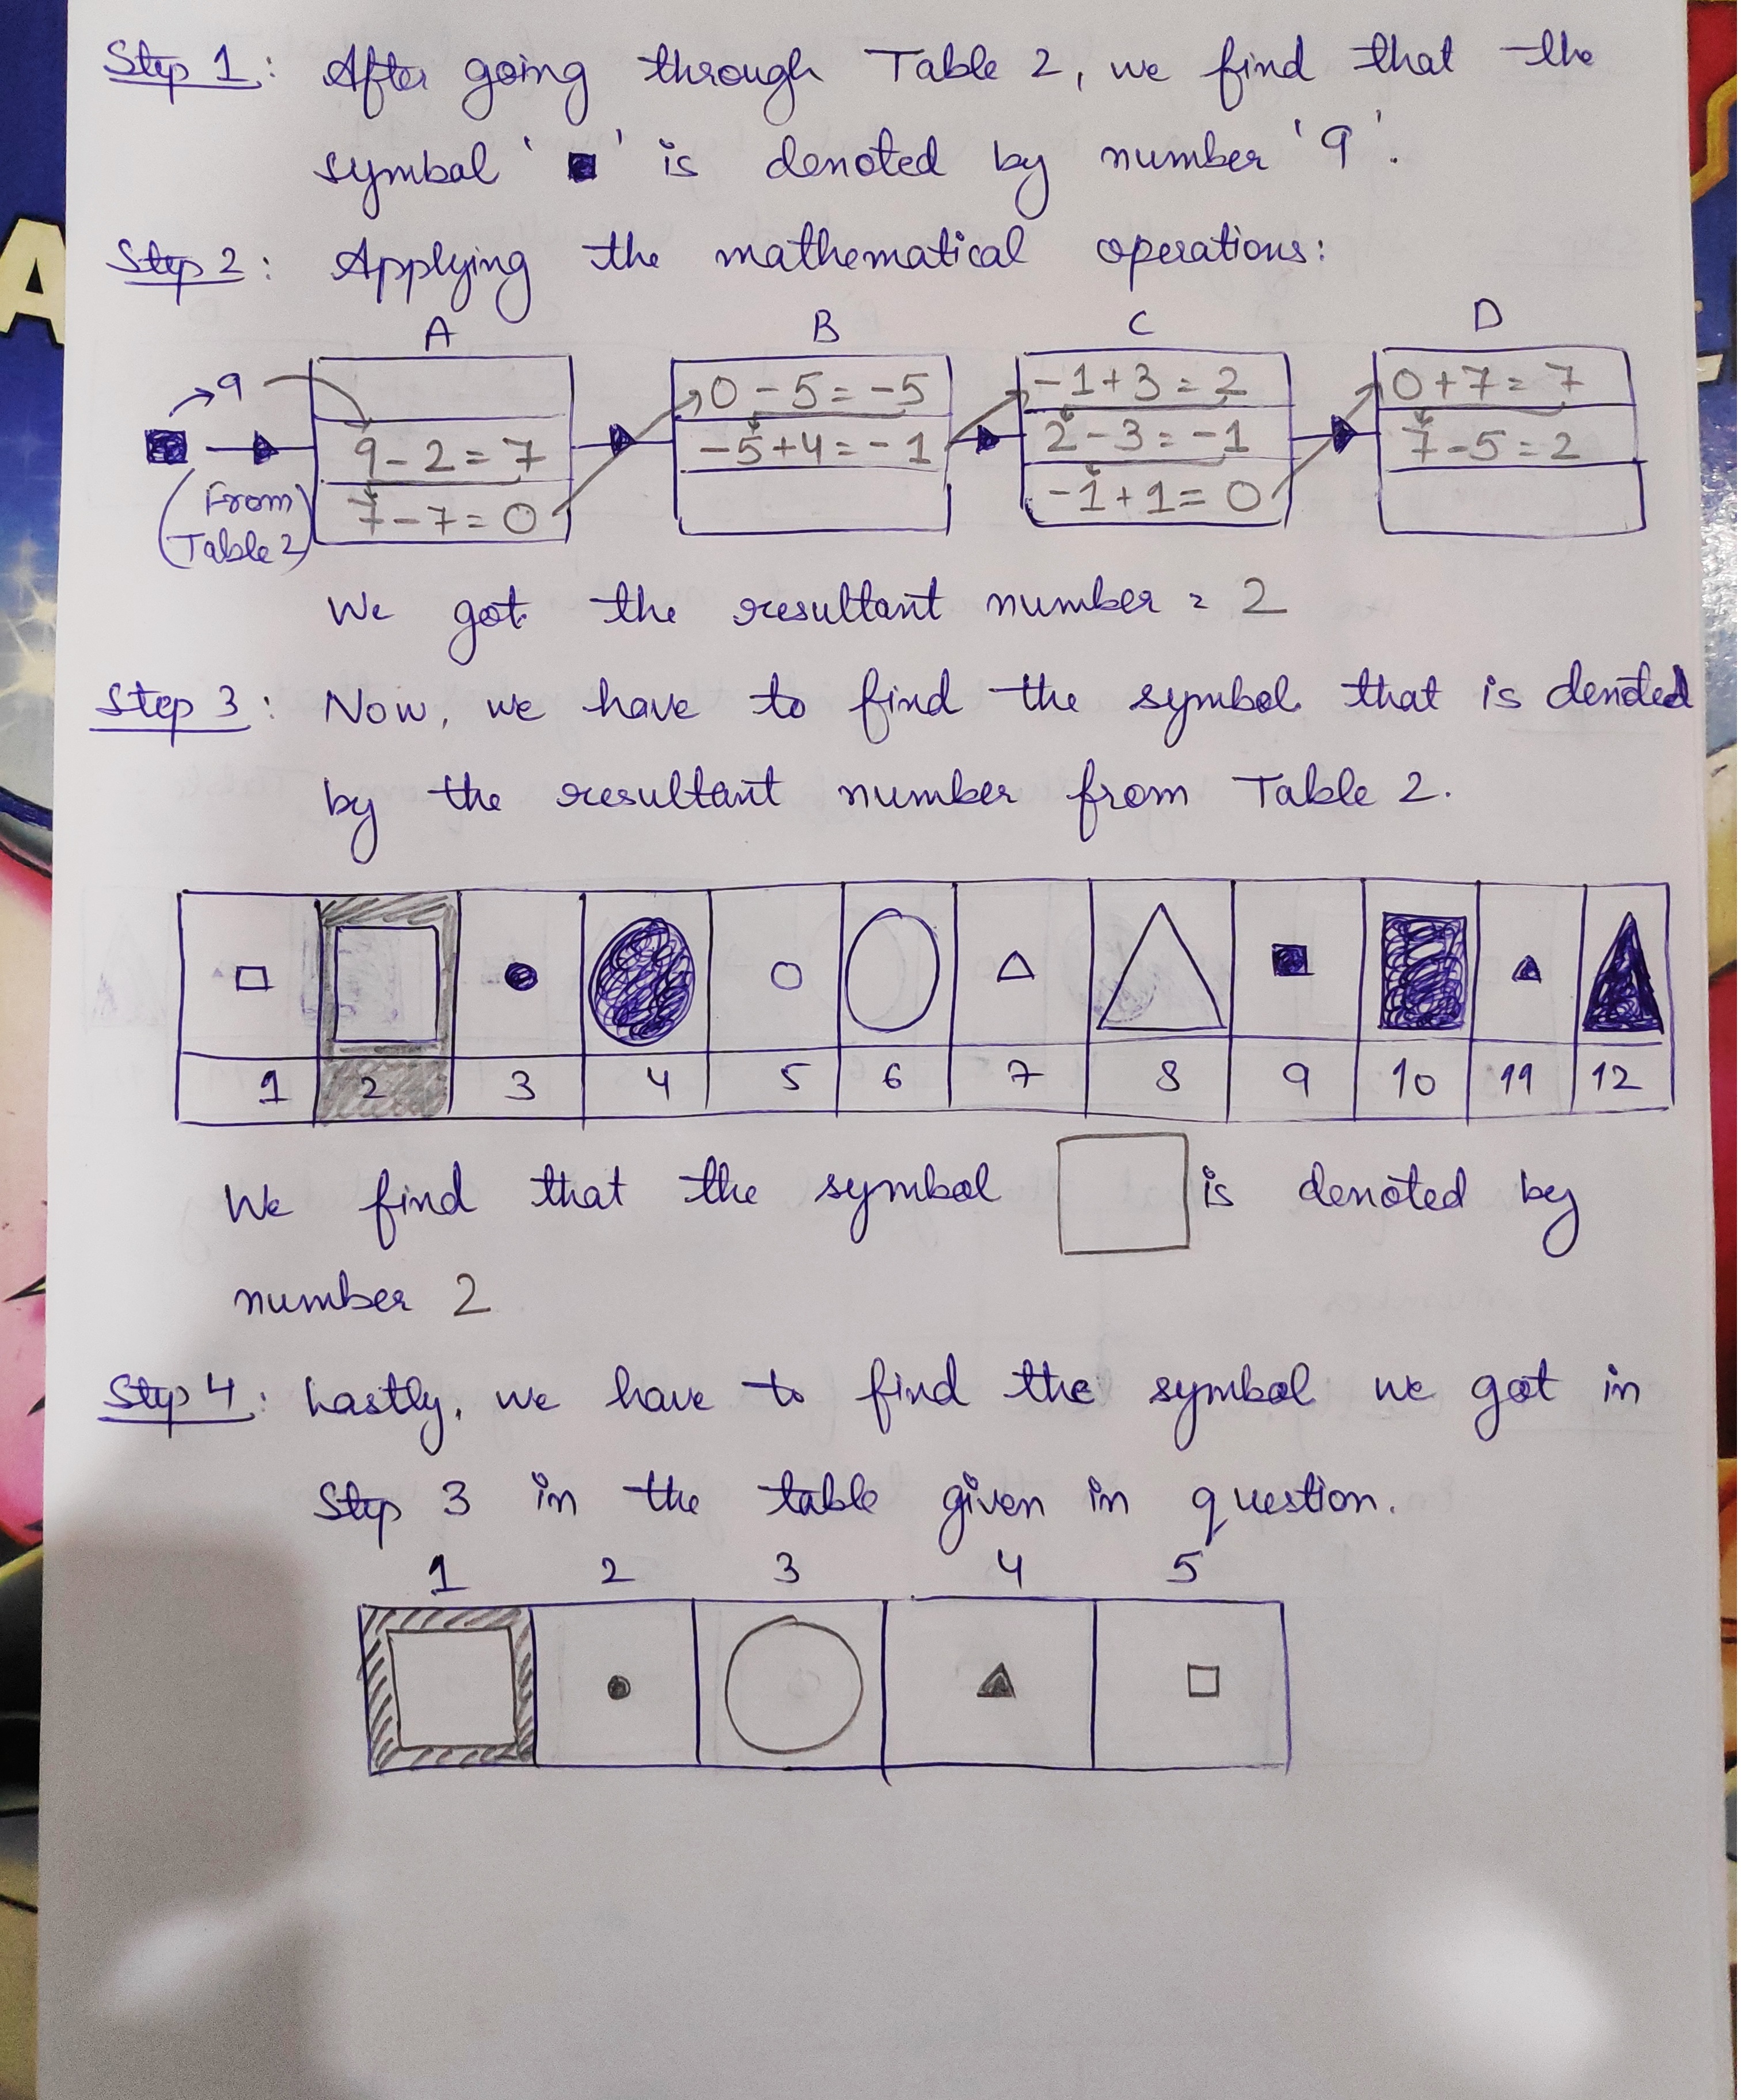 Step 1: After going through Table 2, we find that the
symbol '■' is denoted by number '9'.
Step 2: Applying the mathematical operations:
A B C D
9
9-2=7
7-7=0
0-5=-5
-5+4=-1
-1+3=2
2-3=-1
-1+1=0
0+7=7
7-5=2
(From
Table 2)
We got the resultant number = 2
Step 3: Now, we have to find the symbol that is denoted
by the resultant number from Table 2.
1 2 3 4 5 6 7 8 9 10 11 12
We find that the symbol □ is denoted by
number 2
Step 4: Lastly, we have to find the symbol we got in
Step 3 in the table given in question.
1 2 3 4 5
A